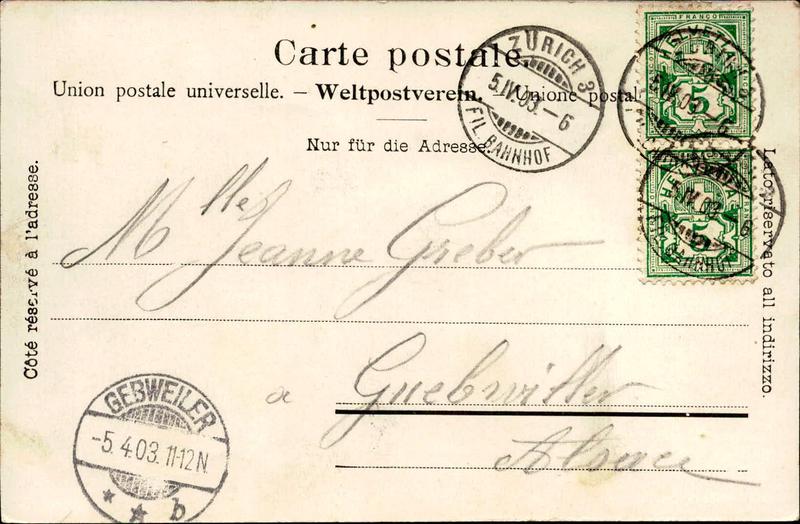 Carte postale.
Union postale universelle. – Weltpostverein. – Unione postal
Nur für die Adresse.
Côté réservé à l'adresse.
Lato riservato all indirizzo.
ZÜRICH 3
5.IV.03.–6
FIL. BAHNHOF
FRANCO
HELVETIA
5
HELVETIA
5
5.IV.03.–6
FIL. BAHNHOF
Mlle Jeanne Greber
a Guebwiller
Alsace
GEBWEILER
–5.4.03. 11-12N
* * b